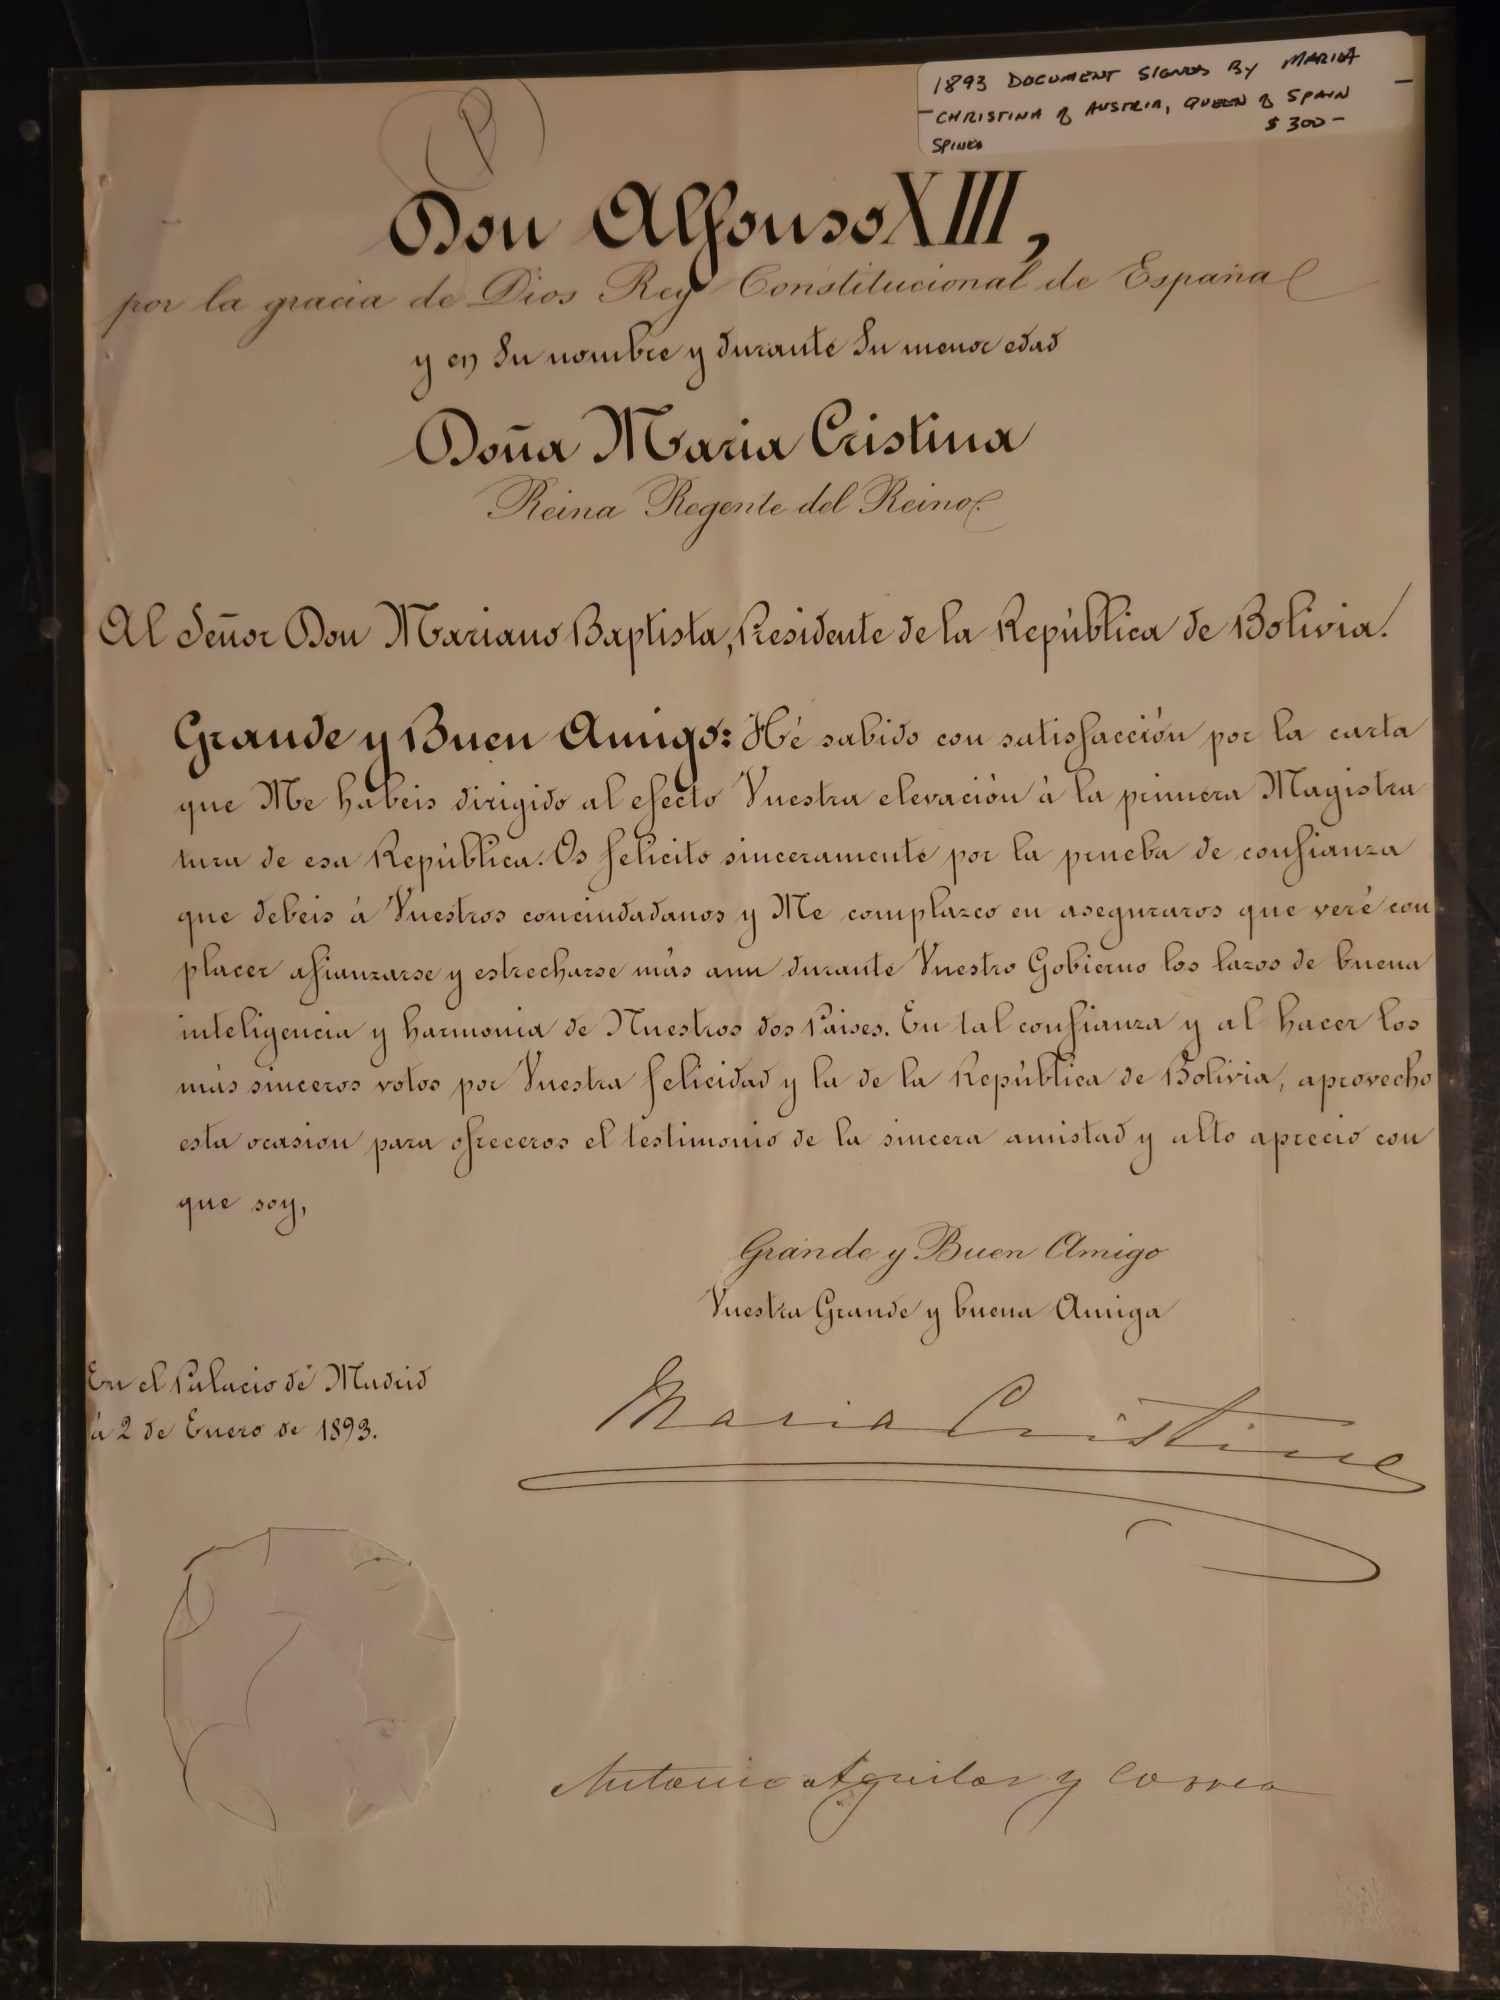 1893 DOCUMENT SIGNED BY MARIA
CHRISTINA of AUSTRIA, QUEEN of SPAIN
$300-
Don Alfonso XIII,
por la gracia de Dios Rey Constitucional de España
y en Su nombre y durante Su menor edad
Doña Maria Cristina
Reina Regente del Reino.
Al Señor Don Mariano Baptista, Presidente de la República de Bolivia.
Grande y Buen Amigo: Hé sabido con satisfacción por la carta
que Me habeis dirigido al efecto Vuestra elevación à la primera Magistra
tura de esa República. Os felicito sinceramente por la prueba de confianza
que debeis à Vuestros conciudadanos y Me complazco en aseguraros que veré con
placer afianzarse y estrecharse más aun durante Vuestro Gobierno los lazos de buena
inteligencia y harmonia de Nuestros dos Paises. En tal confianza y al hacer los
más sinceros votos por Vuestra felicidad y la de la República de Bolivia, aprovecho
esta ocasion para ofreceros el testimonio de la sincera amistad y alto aprecio con
que soy,
Grande y Buen Amigo
Vuestra Grande y buena Amiga
En el Palacio de Madrid
à 2 de Enero de 1893.
Maria Cristina
Antonio Aguilar y Correa